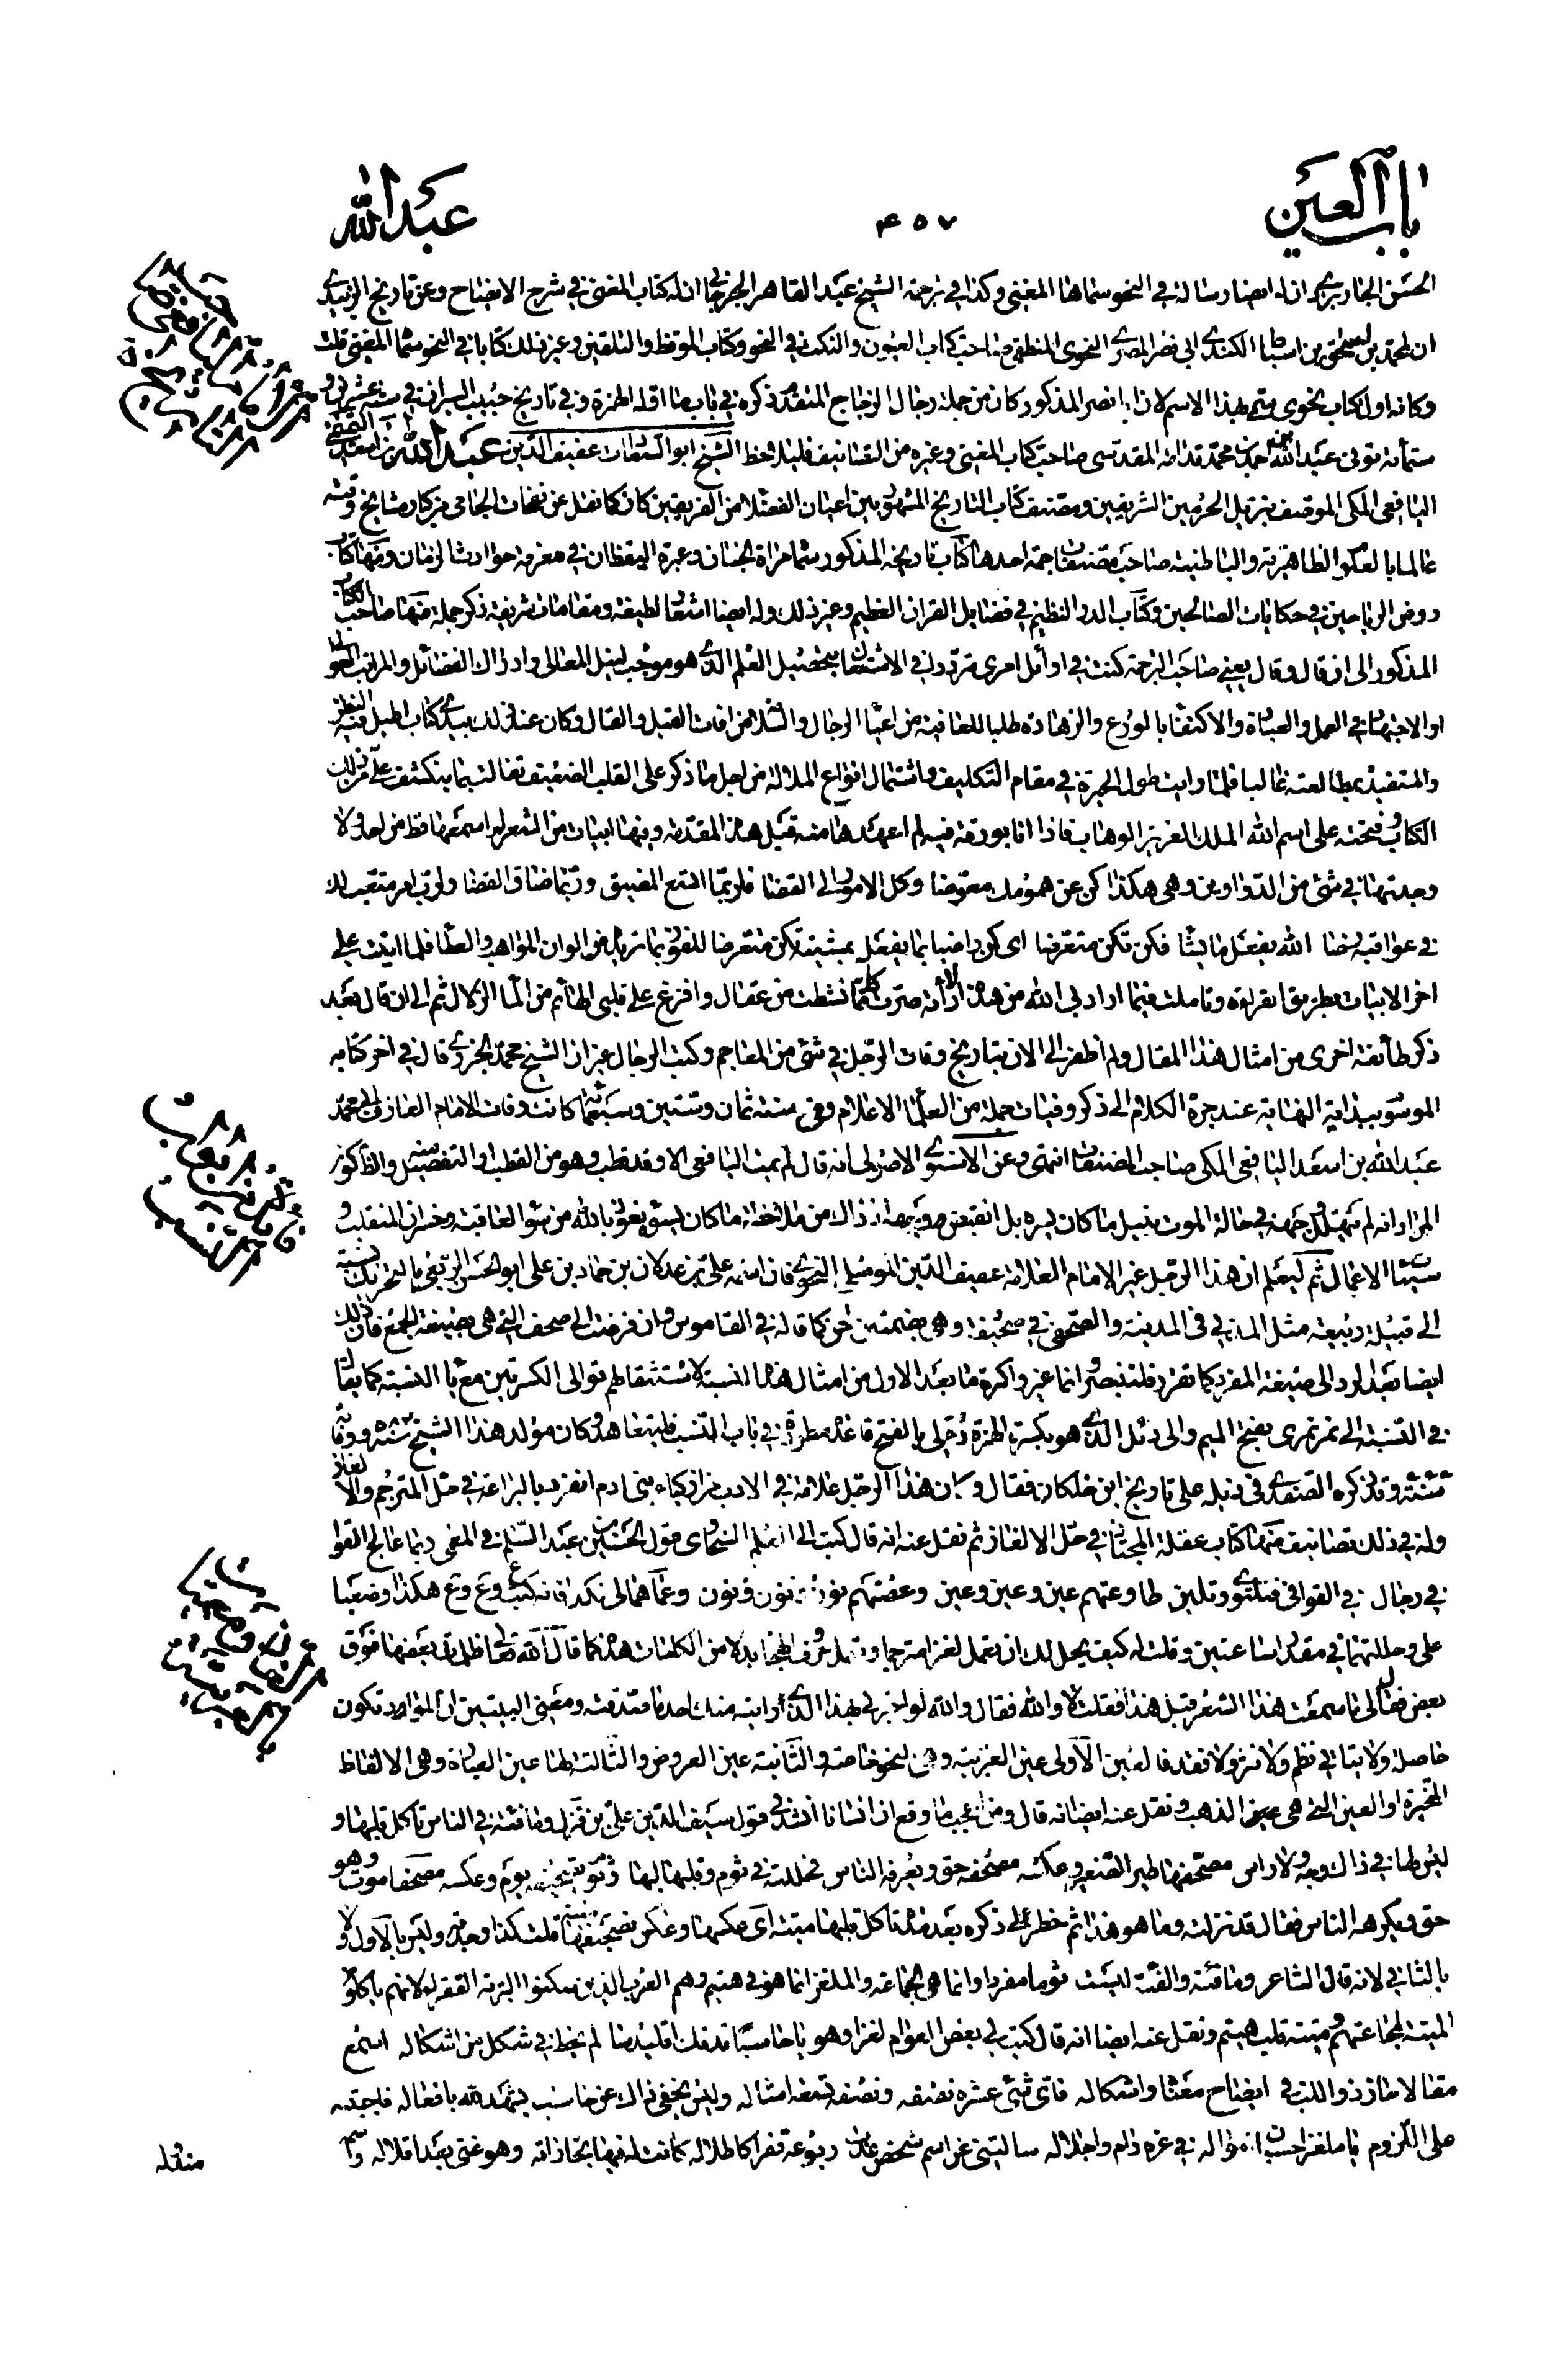 باب العين
٤٥٧
عبد الله
الحسن الجاربردي ان له ايضا رسالة في النحو سماها المغني وكذا في ترجمة الشيخ عبد القاهر الجرجاني ان له كتاب المغني في شرح الايضاح وعن تاريخ الزبيدي
ان لمحمد بن اسحق بن اسباط الكندي ابي نضر المصري النحوي المنطقي صاحب كتاب العيون والنكت في النحو وكتاب الموقظ والتلقين وغير ذلك كتابا في النحو سماه المغني قلت
وكانه اول كتاب نحوي سمي بهذا الاسم لان ابا نضر المذكور كان من جملة رجال الزجاج المتقدم ذكره في باب ما اوله الهمزة وفي تاريخ حبيب السير انه في سنة عشرين و
ستمأة توفي عبد الله بن احمد بن محمد قدامة المقدسي صاحب كتاب المغني وغيره من التصانيف فليلاحظ الشيخ ابو السعادات عفيف الدين عبد الله بن اسعد اليمني
اليافعي المكي الموصف بنزيل الحرمين الشريفين ومصنف كتاب التاريخ المشهور بين اعيان الفضلاء من الفريقين كان كما نقل عن نفحات الجامي من كبار مشايخ وقته
عالما بالعلوم الظاهرية والباطنية صاحب مصنفات جمة احدها كتاب تاريخه المذكور سماه مراة الجنان وعبرة اليقظان في معرفة حوادث الزمان ومنها كتاب
روض الرياحين في حكايات الصالحين وكتاب الدر النظيم في فضايل القران العظيم وغير ذلك وله ايضا اشعار لطيفة ومقامات شريفة ذكر جملة منها صاحب الكتاب
المذكور الى ان قال وقال يعني صاحب الترجمة كنت في اوائل امري مترددا في الاشتغال بتحصيل العلم الذي هو موجب لنيل المعالي وادراك الفضائل والمراتب العوالي
او الاجتهاد في العمل والعبادة والاكتفاء بالورع والزهادة طلبا للعافية من اعباء الرجال والسلامة من افات القيل والقال وكان عندي اذ ذلك بيدي كتاب اطيل فيه النظر
واستفيد بمطالعته غالبا فلما رايت طول الحيرة في مقام التكليف واشتمال انواع الملالة من اجل ما ذكر على القلب الضعيف تفالت بما ينكشف علي من ذلك
الكتاب وفتحته على اسم الله الملك العزيز الوهاب فاذا انا بورقة فيه لم اعهدها منه قبل هذه المقدمة وفيها ابيات من الشعر لم اسمعها قط من احد ولا
وجدتها في شئ من الدواوين وهي هكذا كن عن همومك معرضا وكل الامور الى القضا فلربما اتسع المضيق وربما ضاق الفضا ولرب امر متعب لك
في عواقبه رضا الله يفعل ما يشا فكن تكن متعرضا اي كن راضيا بما يفعل بمشيته تكن متعرضا للفوز بما تريد من الوان المواهب والعطا فلما اتيت على
اخر الابيات بطريق القراءة وتاملت فيما اراد بي الله من هذه الارائة صرت كانما نشطت من عقال وافرغ على قلبي الظائم من الماء الزلال ثم الى ان قال بعد
ذكر طائفة اخرى من امثال هذا المقال ولم اظفر الى الان بتاريخ وفات الرجل في شئ من المعاجم وكتب الرجال غير ان الشيخ محمد الجزري قال في اخر كتابه
الموسوم ببداية النهاية عند جره الكلام الى ذكر وفيات جملة من العلماء الاعلام وفي سنة ثمان وستين وسبعمائة كانت وفات الامام العارف ابي محمد
عبد الله بن اسعد اليافعي المكي صاحب المصنفات انتهى وعن الاسنوي الاصولي انه قال لم يمت اليافعي الا وقد قطب وهو من القطب والتفضيل والظ كون
المراد انه لم يتهلل وجهه في حالة الموت بنيل ما كان يسره بل انقبض وجهه اذ ذاك من ملاحظة ما كان يسوؤه نعوذ بالله من سوء العاقبة وخسران المنقلب و
سيئات الاعمال ثم ليعلم ان هذا الرجل غير الامام العلامة عفيف الدين الموصلي النحوي فان اسمه علي بن عدلان بن حماد بن علي ابو الحسن الربعي بالتحريك نسبة
الى قبيلة ربيعة مثل المدني في المدينة والصحفي في صحيفة وهو بضمتين لحن كما قاله في القاموس وان فرضت الى صحف التي هي بصيغة الجمع فان ذلك
ايضا بعد الرد الى صيغة المفرد كما تقرر فلتبصر وانما غيروا كسرة ما بعد الاول من امثال هذه النسبة لاستثقالهم توالي الكسرتين مع ياء النسبة كما يقال
في النسبة الى نمر نمري بفتح الميم والى دئل الذي هو بكسر الهمزة دؤلي بالفتح قاعدة مطردة في باب النسب فليتعاهد وكان مولد هذا الشيخ سنة ووفاته
سنة وقد ذكره الصفدي في ذيله على تاريخ ابن خلكان فقال وكان هذا الرجل علامة في الادب من اذكياء بني ادم انفرد بالبراعة في حل المترجم والالغاز
وله في ذلك تصانيف منها كتاب عقلة المجتاز في حل الالغاز ثم نقل عنه انه قال كتب الي العلم السخاوي قول الحسين بن عبد السلام في المعمى ربما عالج القوا
في رجال في القوافي فتلتوي وتلين طاوعتهم عين وعين وعين وعصتهم نون ونون ونون وعماهما لي نكدا فانه كتب ع وع وع هكذا وضعها
علي وحللتهما في مقدار ساعتين وقلت له كيف يحل لك ان تعمل لغزا مترجما وتبدل حروف الهجا بدلا من الكلمات هذه كما قال الله تعالى ظلمات بعضها فوق
بعض فقال لي ما سمعت هذا الشعر قبل هذا فقلت لا والله فقال والله لو اخبرني بهذا الذي رايته منك احد ما صدقته ومعنى البيتين ان المواد تكون
حاصلة ولا يتاتى نظم ولا نثر ولا نقد فالعين الاولى عين العربية وهي النحو خاصة والثانية عين العروض والثالثة لها عين العبارة وهي الالفاظ
المخيرة او العين التي هي عين الذهب ونقل عنه ايضا انه قال ومن عجيب ما وقع ان انسانا انشدني قول سيف الدين علي بن قزل وما فئة في الناس تاكل قلبها و
ليس لها في ذاك وجه ولا راس مصحفها طير الصغير وعكسه مصحفه حق ويعرفه الناس فحللته في ثوم وقلبها لبها
حق ويكرهه الناس فقال قد نزلته وما هو هذا ثم خطر لي ذكره بعد مدة تاكل قلبها ميتة اي عكسها وعكس تصحيفها قلت كذا وجدته وليس بالاول ولا
بالثاني لانه قال الشاعر وما فئة والفئة ليست ثوما مفردا وانما هي الجماعة والملغز انما هو في هيتم وهم العرب الذين سكنوا البرية القفر لانهم ياكلون
الميتة لمجاعتهم وميتة قلب هيتم ونقل عنه ايضا انه قال كتب لي بعض العوام لغزا وهو يا حاسبا قد فك اقليدسا لم يخط في شكل من اشكاله اسمع
مقالا حاز ذو اللب في ايضاح معناه واشكاله فاي شئ عشره نصفه ونصفه تسعة امثاله وليس يخفى ذاك عن حاسب يشهد لله بافعاله فاجبته
على اللزوم يا ملغزا في عزه دام واجلاله سالتني عن اسم شخص غدت ربوعه قفرا كاطلاله كانت له فيها وهو غني بعد اقلاله واسم
مثله